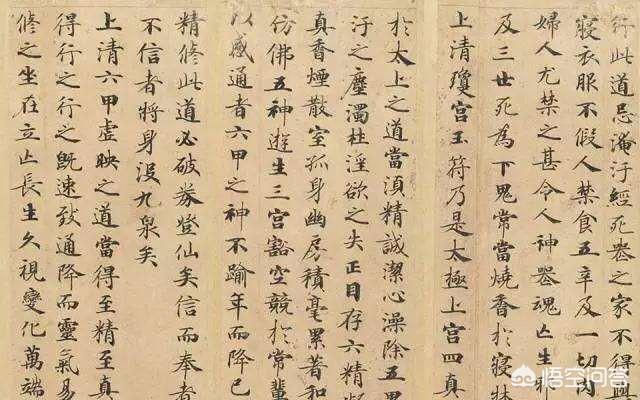 行此道忌淹汙經死喪之家不得與
寢衣服不假人禁食五辛及一切肉
婦人尤禁之甚令人神喪魂亡生邪
及三世死為下鬼常當燒香於寢牀
上清瓊宮玉符乃是太極上宮四真
於太上之道當須精誠潔心澡除五累
汙之塵濁杜淫欲之失正目存六精凝
真香煙散室孤身幽房積毫累著和
仿佛五神遊生三宮豁空競於常輩
以感通者六甲之神不踰年而降已
精修此道必破券登仙矣信而奉者
不信者將身沒九泉矣
上清六甲虛映之道當得至精至真
得行之行之既速致通降而靈氣易
修之坐在立亡長生久視變化萬端
悟空问答